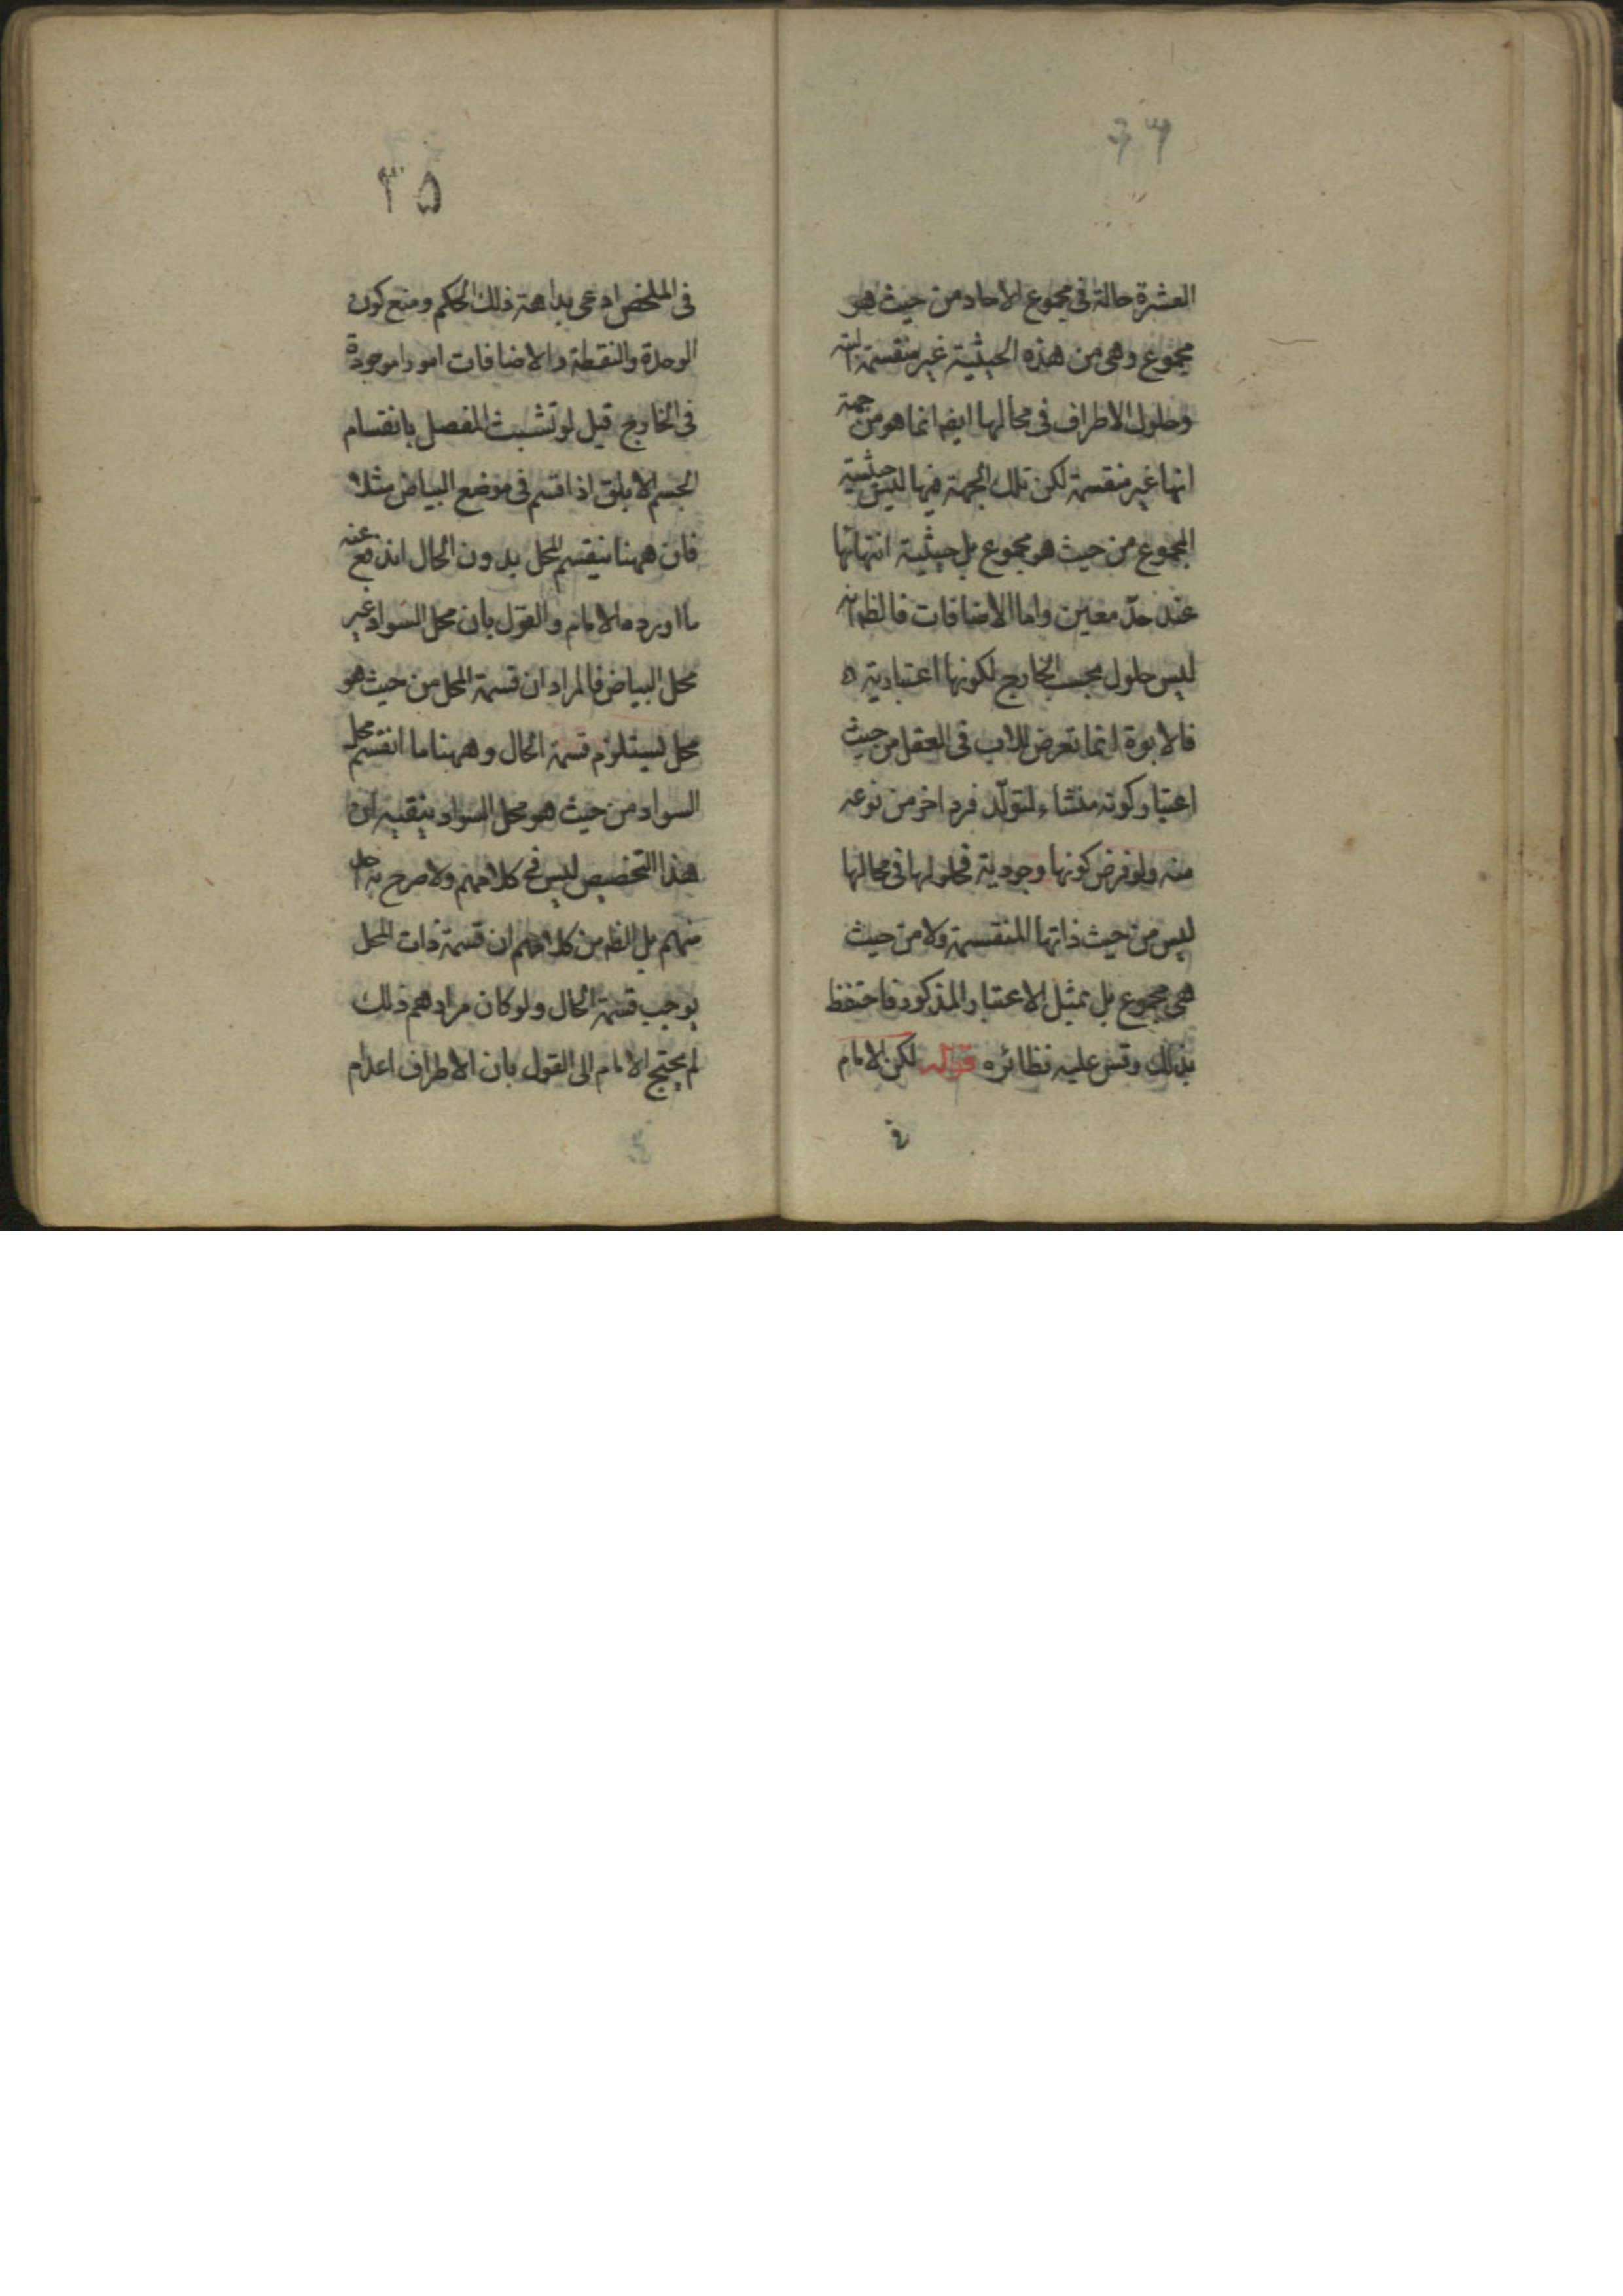 العشرة حالة فى مجموع الاحاد من حيث هو
مجموع وهى من هذه الحيثية غير منقسمة البتة
وحلول الاطراف فى محالها ايضا انما هو من جهة
انها غير منقسمة لكن تلك الجهة فيها ليس حيثية
المجموع من حيث هو مجموع بل حيثية انتهائها
عند حدّ معين واما الاضافات فالظ انه
ليس حلول بحسب الخارج لكونها اعتبارية ه
فالابوة انما تعرض للاب فى العقل من حيث
اعتبار كونه منشاء لتولّد فرد اخر من نوعه
منه ولو فرض كونها وجودية فحلولها فى محالها
ليس من حيث ذاتها المنقسمة ولا من حيث
هى مجموع بل بمثيل الاعتبار المذكور فاحتفظ
بذلك وقس عليه نظائره قوله لكن الامام
٣٥
فى الملخص ادعى بداهة ذلك الحكم ومنع كون
الوحدة والنقطة والاضافات امورا موجودة
فى الخارج قيل لو تشبث المفصل بانقسام
الجسم الابلق اذا قسم فى موضع البياض مثلا
فان ههنا ينقسم المحل بدون الحال اندفع عنه
ما اورده الامام والقول بان محل السواد غير
محل البياض فالمراد ان قسمة المحل من حيث هو
محل يستلزم قسمة الحال وههنا ما انقسم محل
السواد من حيث هو محل السواد ان
هذا التخصيص ليس فى كلامهم ولا صرح به احد
منهم بل الظ من كلامهم ان قسمة ذات المحل
يوجب قسمة الحال ولو كان مرادهم ذلك
لم يحتج الامام الى القول بان الاطراف اعدام